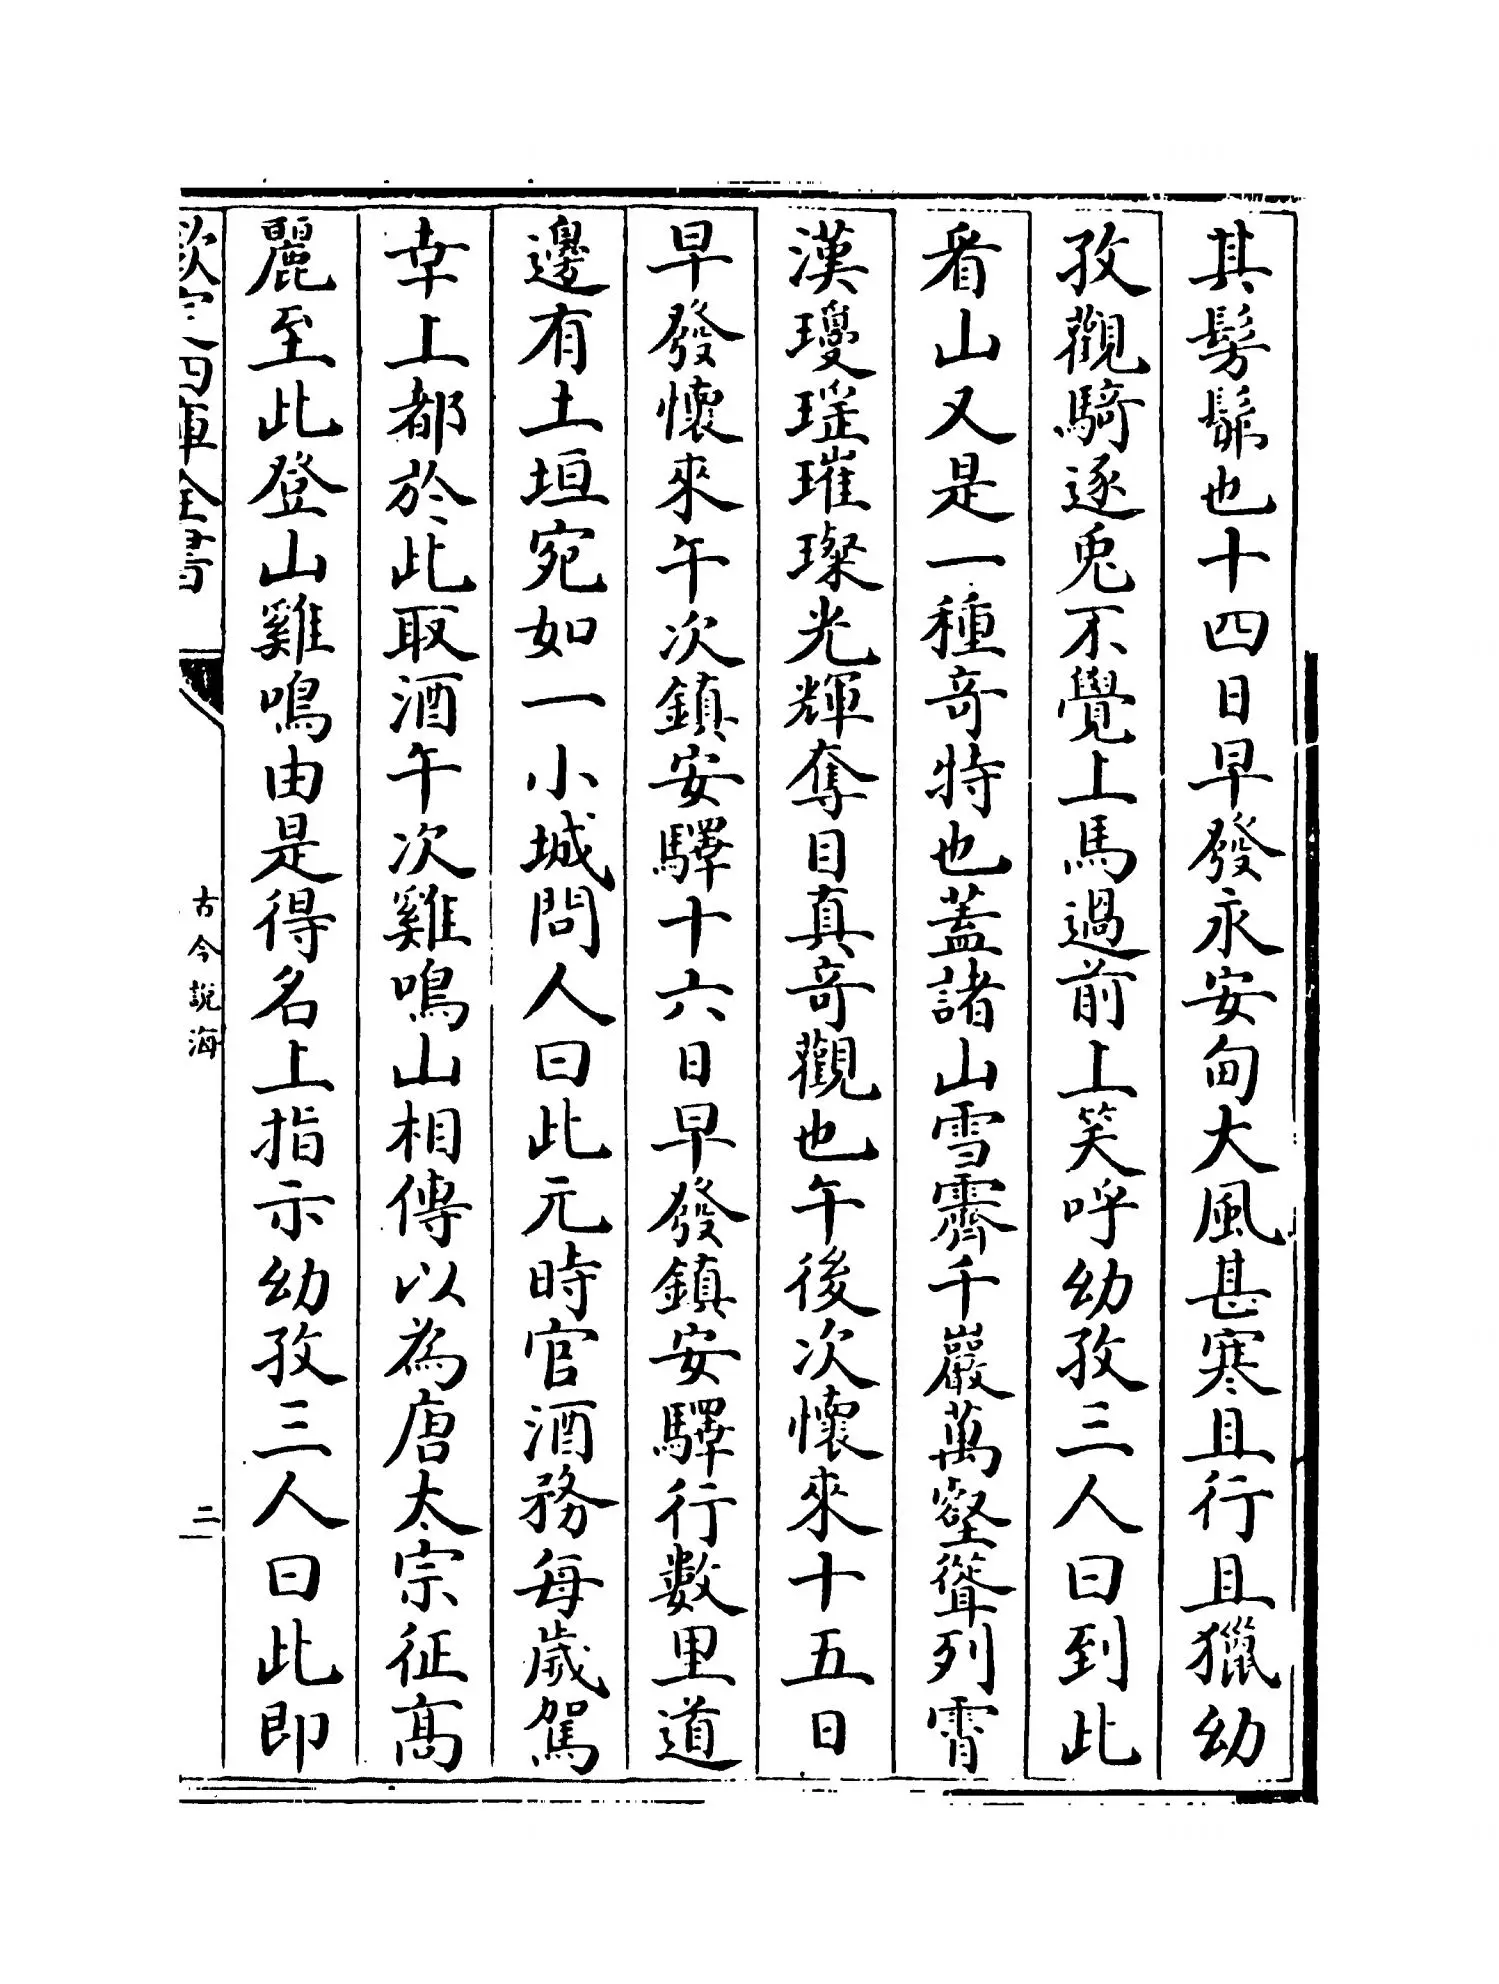 其髣髴也十四日早發永安甸大風甚寒且行且獵幼
孜觀騎逐兎不覺上馬過前上笑呼幼孜三人曰到此
看山又是一種竒特也蓋諸山雪霽千巖萬壑聳列霄
漢瓊瑶璀璨光輝奪目真竒觀也午後次懷來十五日
早發懷來午次鎮安驛十六日早發鎮安驛行數里道
邊有土垣宛如一小城問人曰此元時官酒務每歲駕
幸上都於此取酒午次雞鳴山相傳以為唐太宗征髙
麗至此登山雞鳴由是得名上指示幼孜三人曰此即
欽定四庫全書
古今說海
二